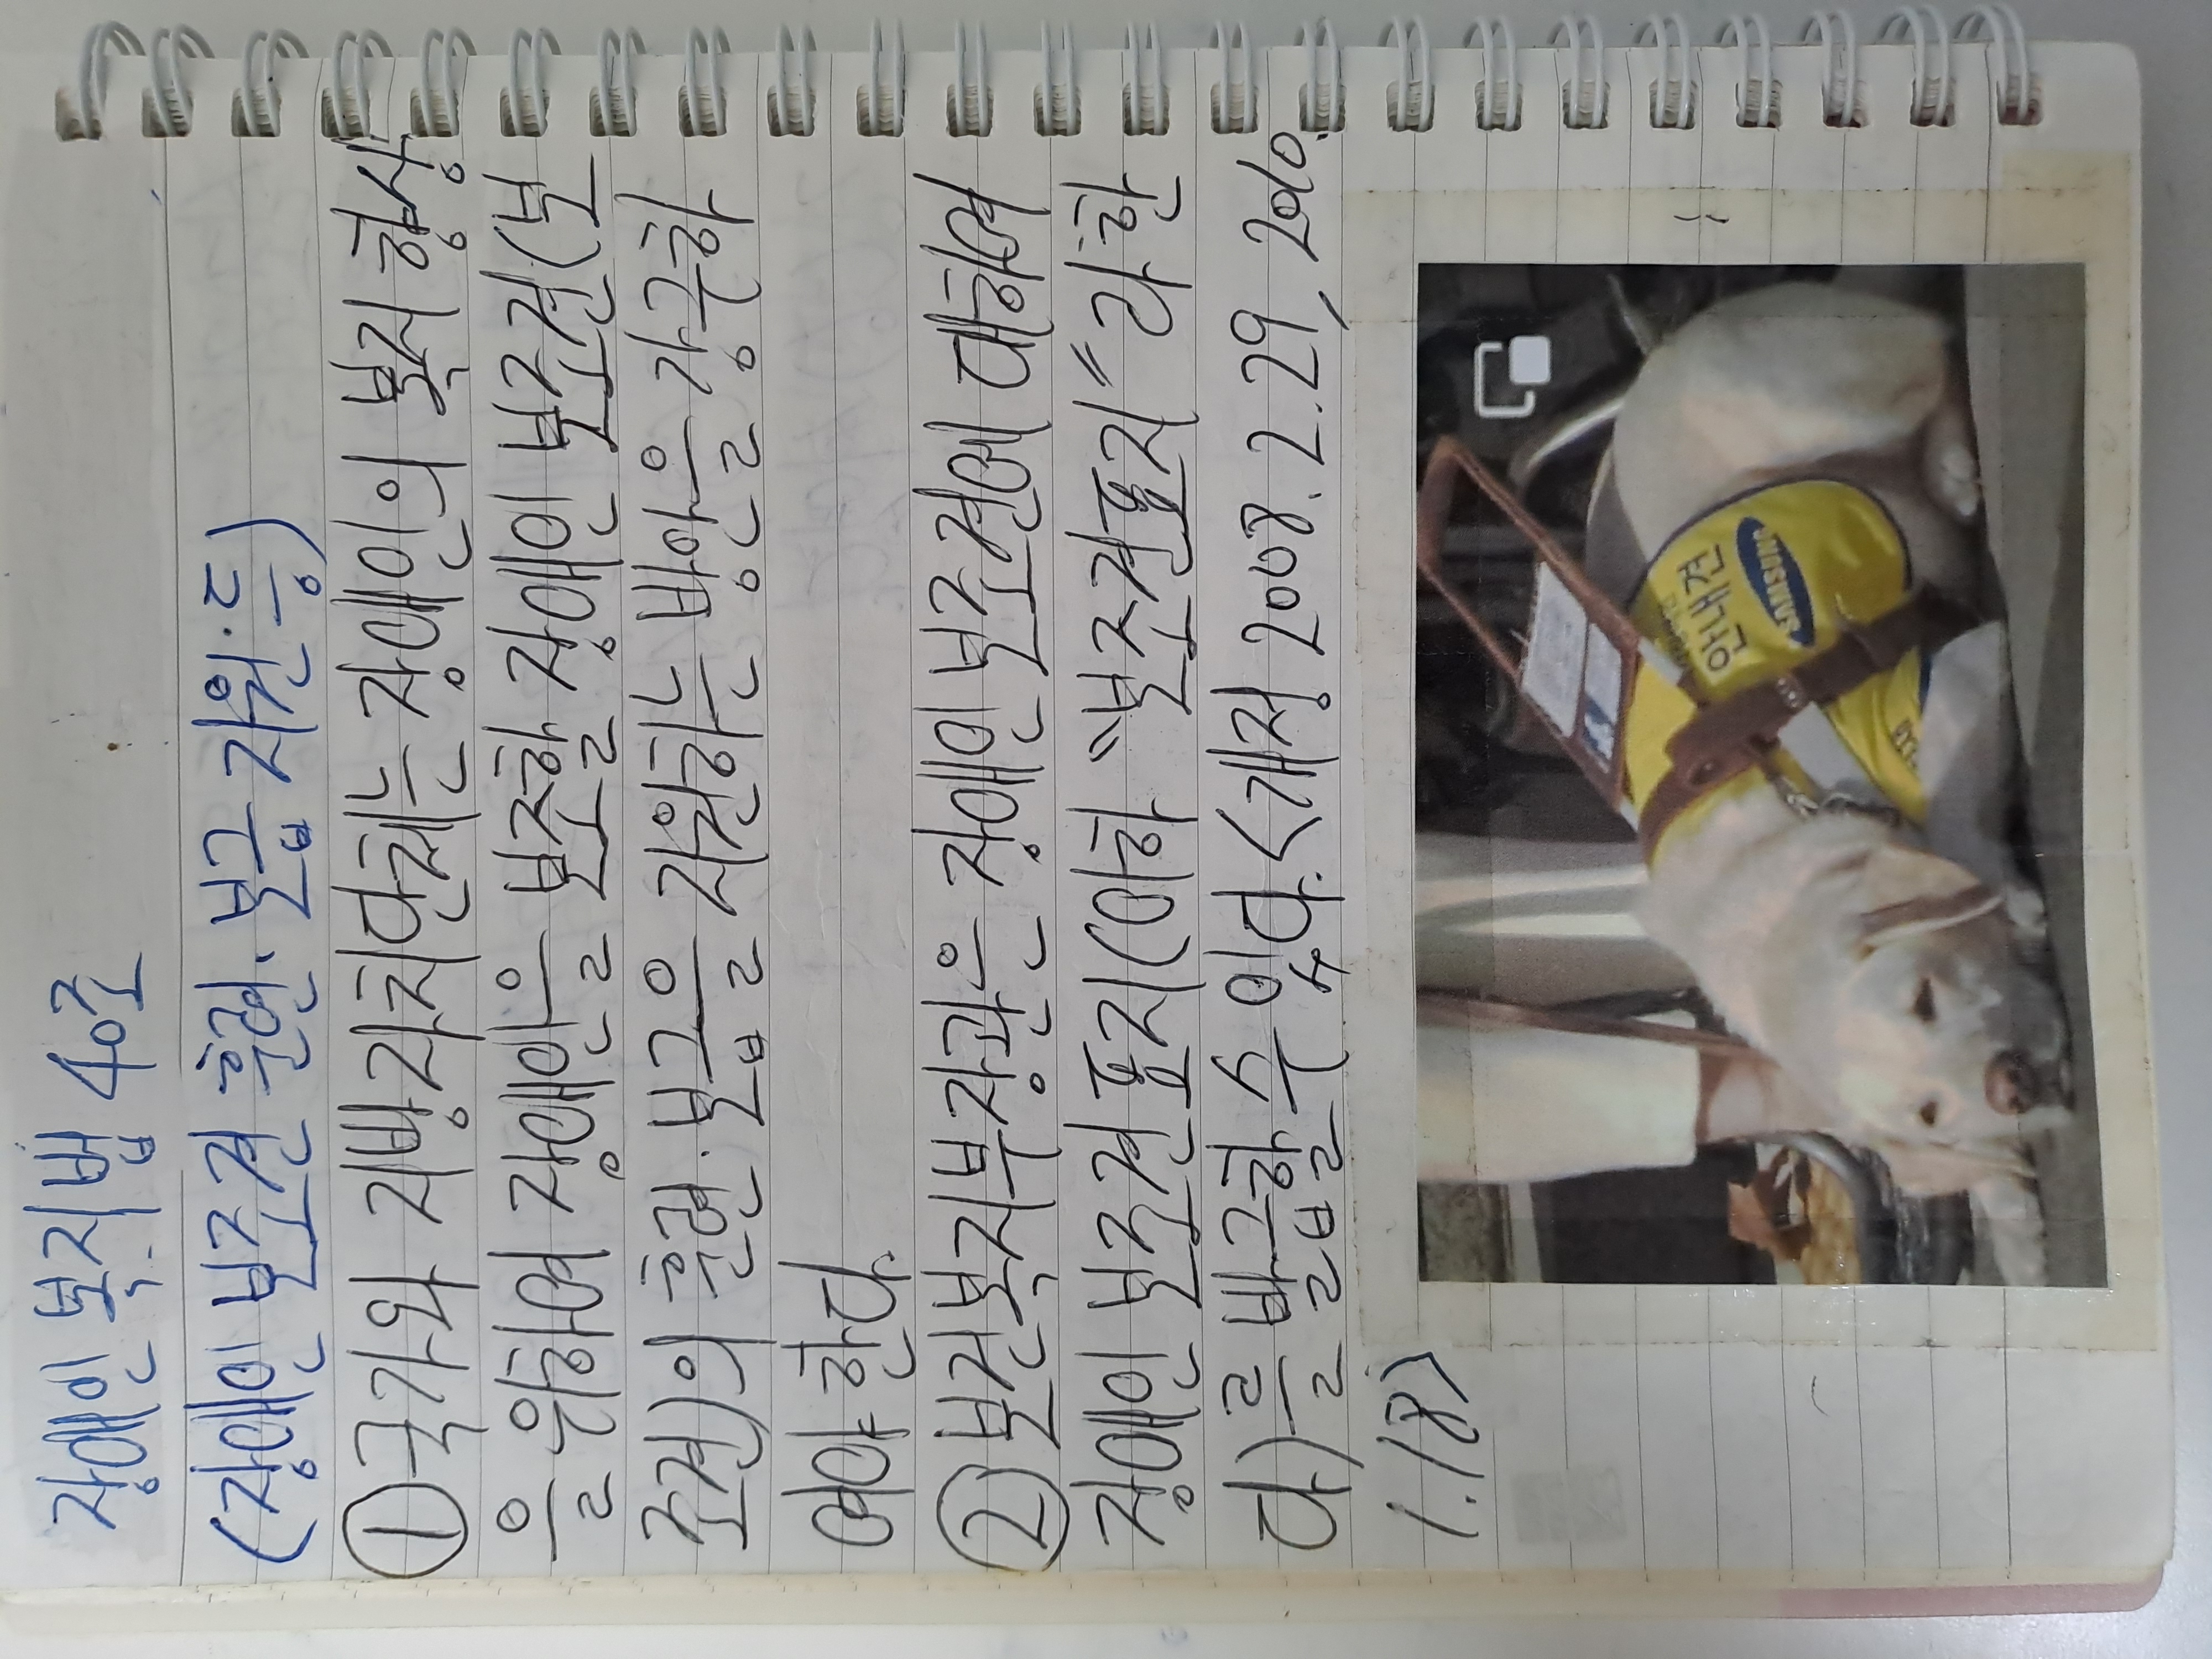 장애인 복지법 40조
(장애인 보조견 훈련·보급 지원·등)
①국가와 지방자치단체는 장애인의 복지 향상
을 위하여 장애인을 보조할 장애인 보조견(보
조견)의 훈련·보급을 지원하는 방안을 강구하
여야 한다.
②보건복지부장관은 장애인 보조견에 대하여
장애인 보조견표지(이하 "보조견표지"라 한
다)를 발급할 수 있다.<개정 2008.2.29, 2010.
1.18>
안내견
SAMSUNG